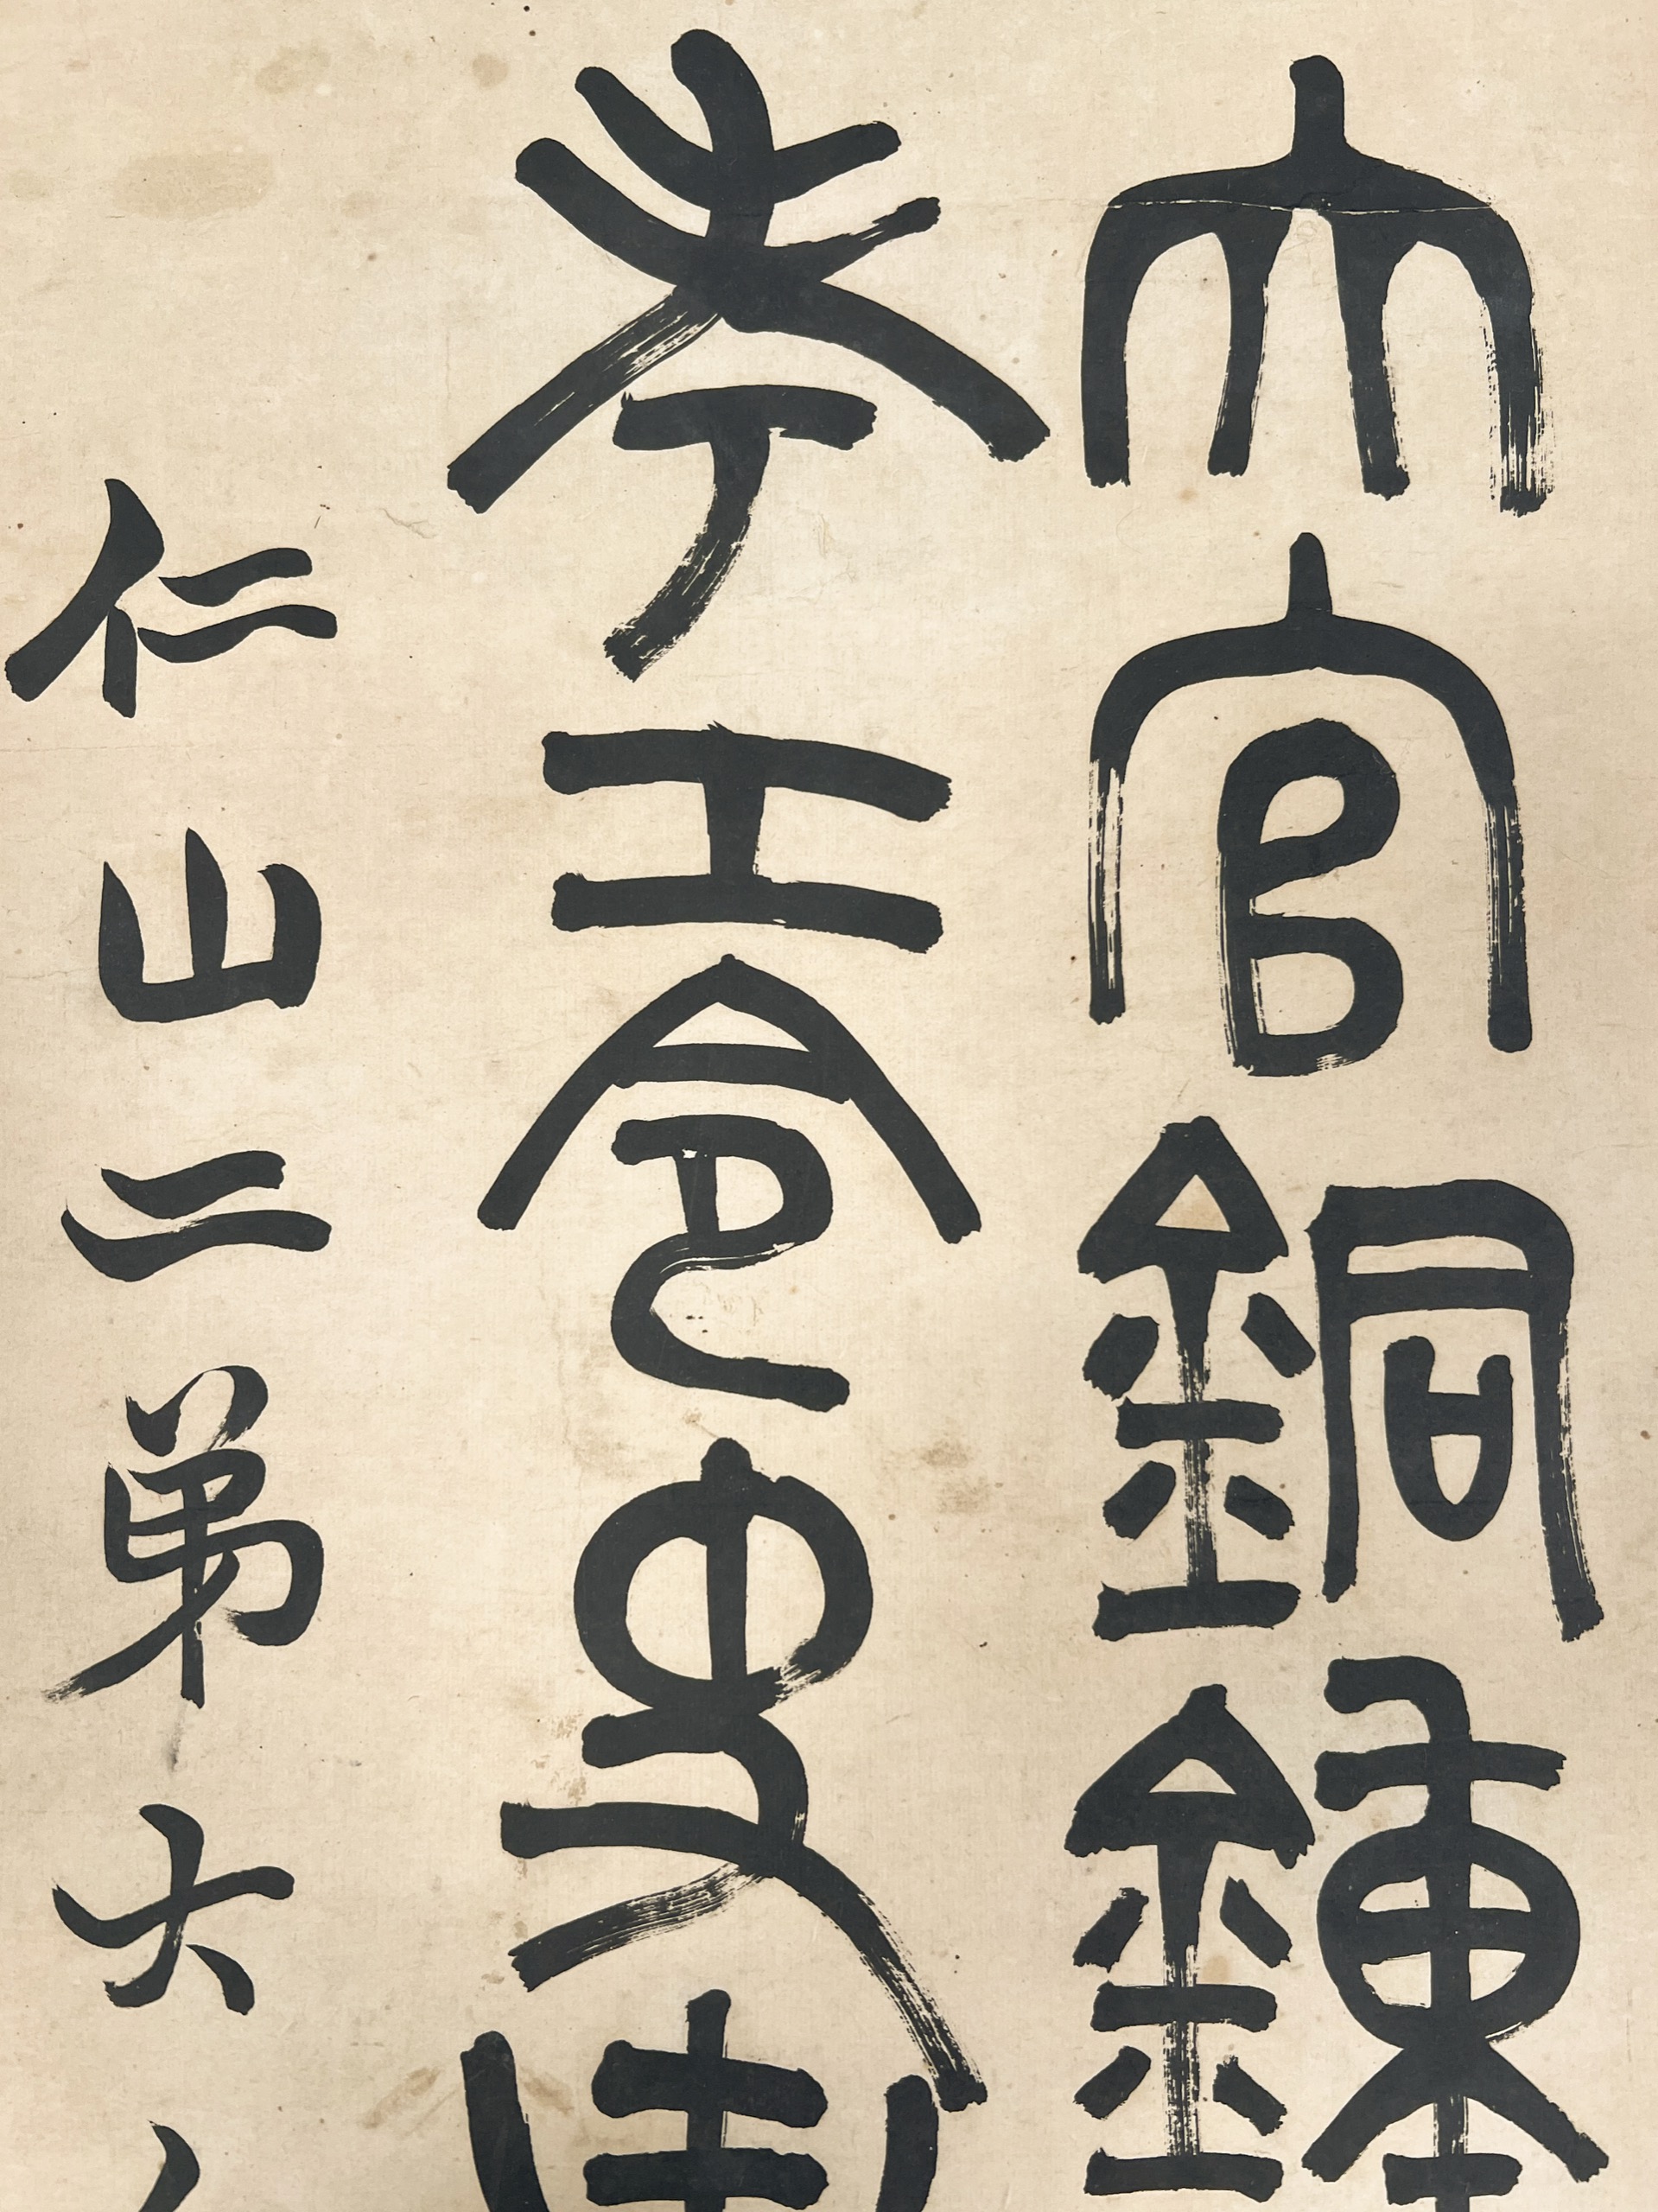 大官銅鍾
考工令史
仁山二弟大